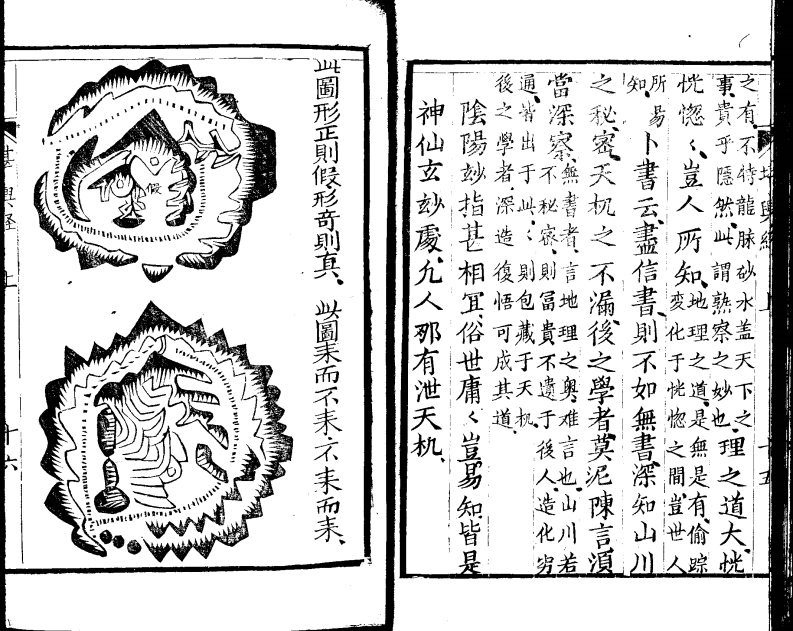 之有不待龍脉砂水盖天下之
事貴乎隱然此謂熟察之妙也
理之道大恍
恍惚〻豈人所知
地理之道是無是有偷踪
変化于恍惚之間豈世人
所易
知
卜書云盡信書則不如無書深知山川
之秘密天机之不漏後之學者莫泥陳言湏
當深察
無書者言地理之奥难言也山川若
不秘密則冨貴不遗于後人造化穷
通皆出于此〻則包藏于天机
後之學者深造復悟可成其道
陰陽玅指甚相冝俗世庸〻豈易知皆是
神仙玄玅處凢人那有泄天机
此圖形正則假形奇則真
此圖耒而不耒不耒而耒
假
十六